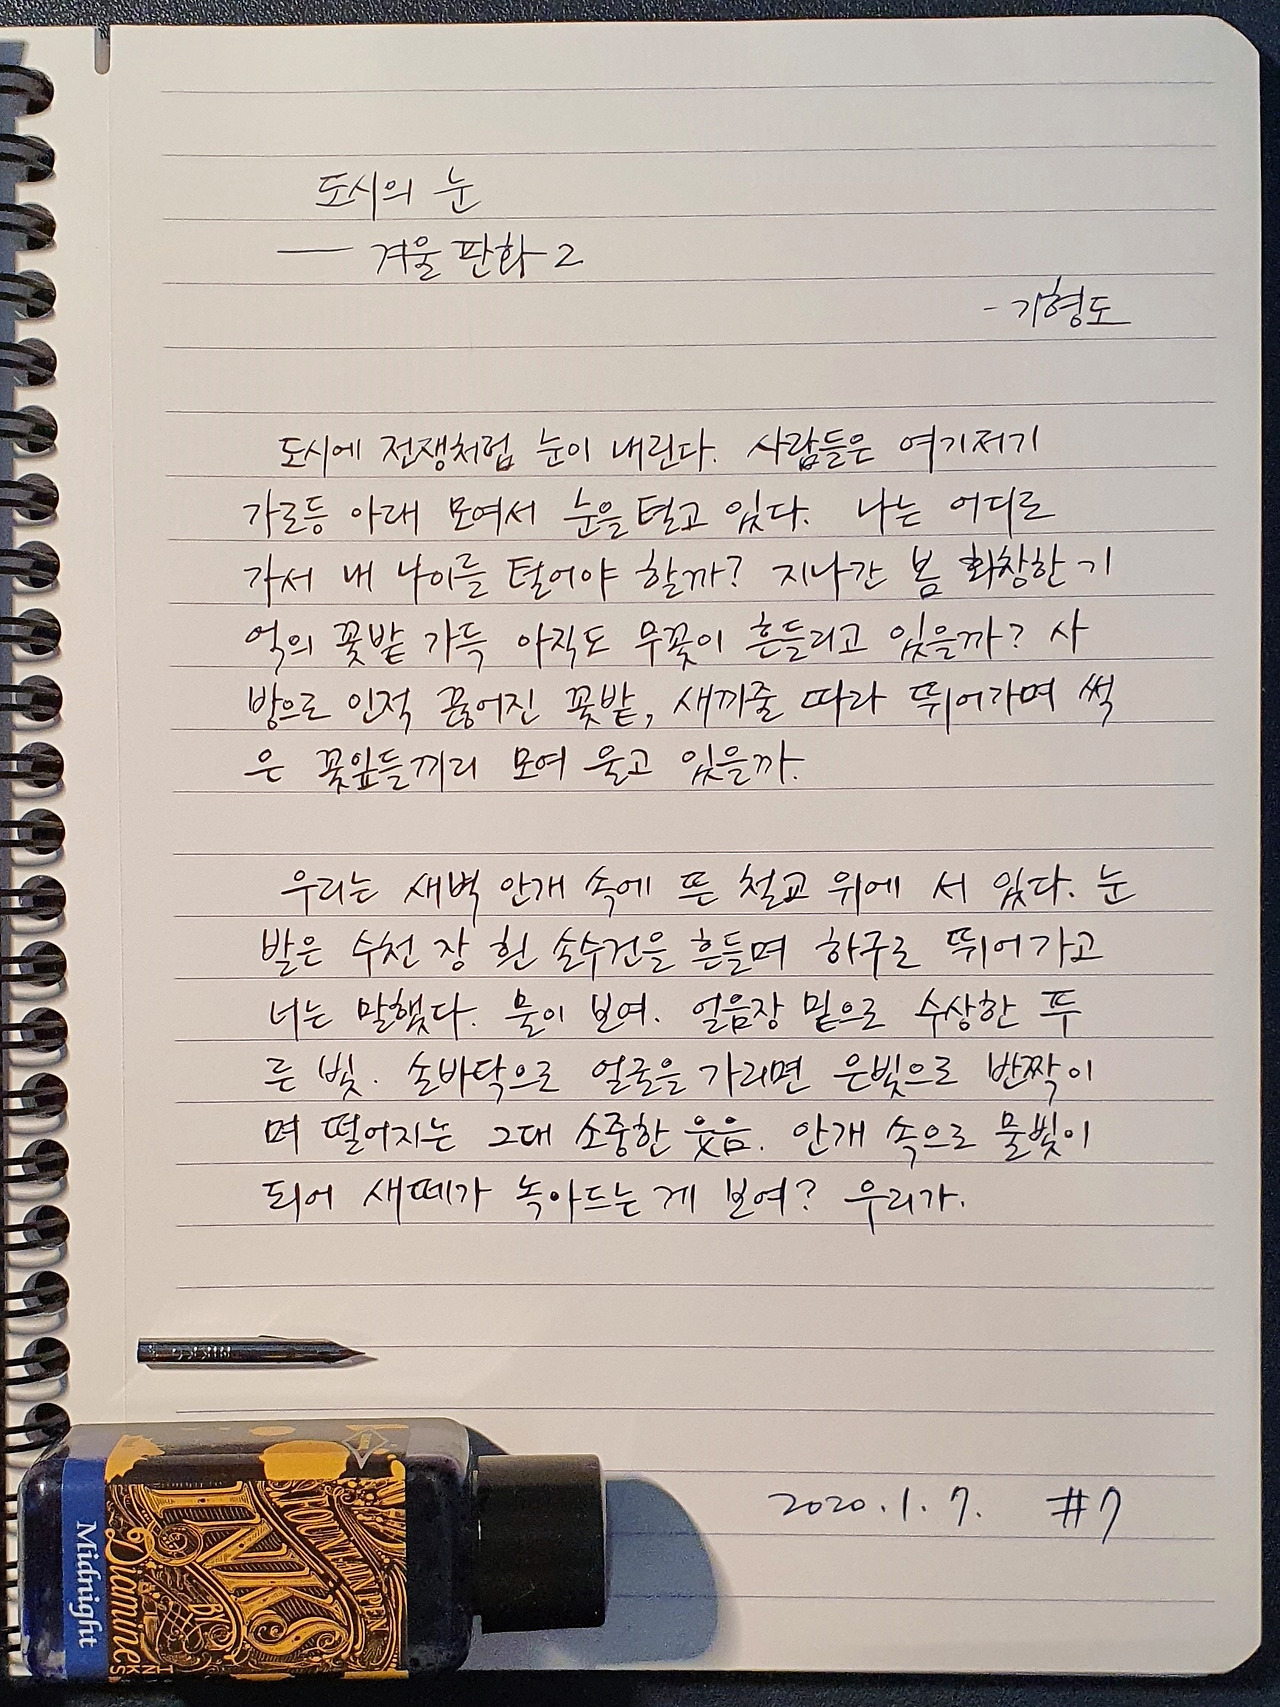 도시의 눈
── 겨울 판화 2
- 기형도
도시에 전쟁처럼 눈이 내린다. 사람들은 여기저기
가로등 아래 모여서 눈을 털고 있다. 나는 어디로
가서 내 나이를 털어야 할까? 지나간 봄 화창한 기
억의 꽃밭 가득 아직도 무꽃이 흔들리고 있을까? 사
방으로 인적 끊어진 꽃밭, 새끼줄 따라 뛰어가며 썩
은 꽃잎들끼리 모여 울고 있을까.
우리는 새벽 안개 속에 뜬 철교 위에 서 있다. 눈
발은 수천 장 흰 손수건을 흔들며 하구로 뛰어가고
너는 말했다. 물이 보여. 얼음장 밑으로 수상한 푸
른 빛. 손바닥으로 얼굴을 가리면 은빛으로 반짝이
며 떨어지는 그대 소중한 웃음. 안개 속으로 물빛이
되어 새떼가 녹아드는 게 보여? 우리가.
2020. 1. 7. #7
FOUNTAIN PEN
INKS
BY
Diamine
INKS
Midnight